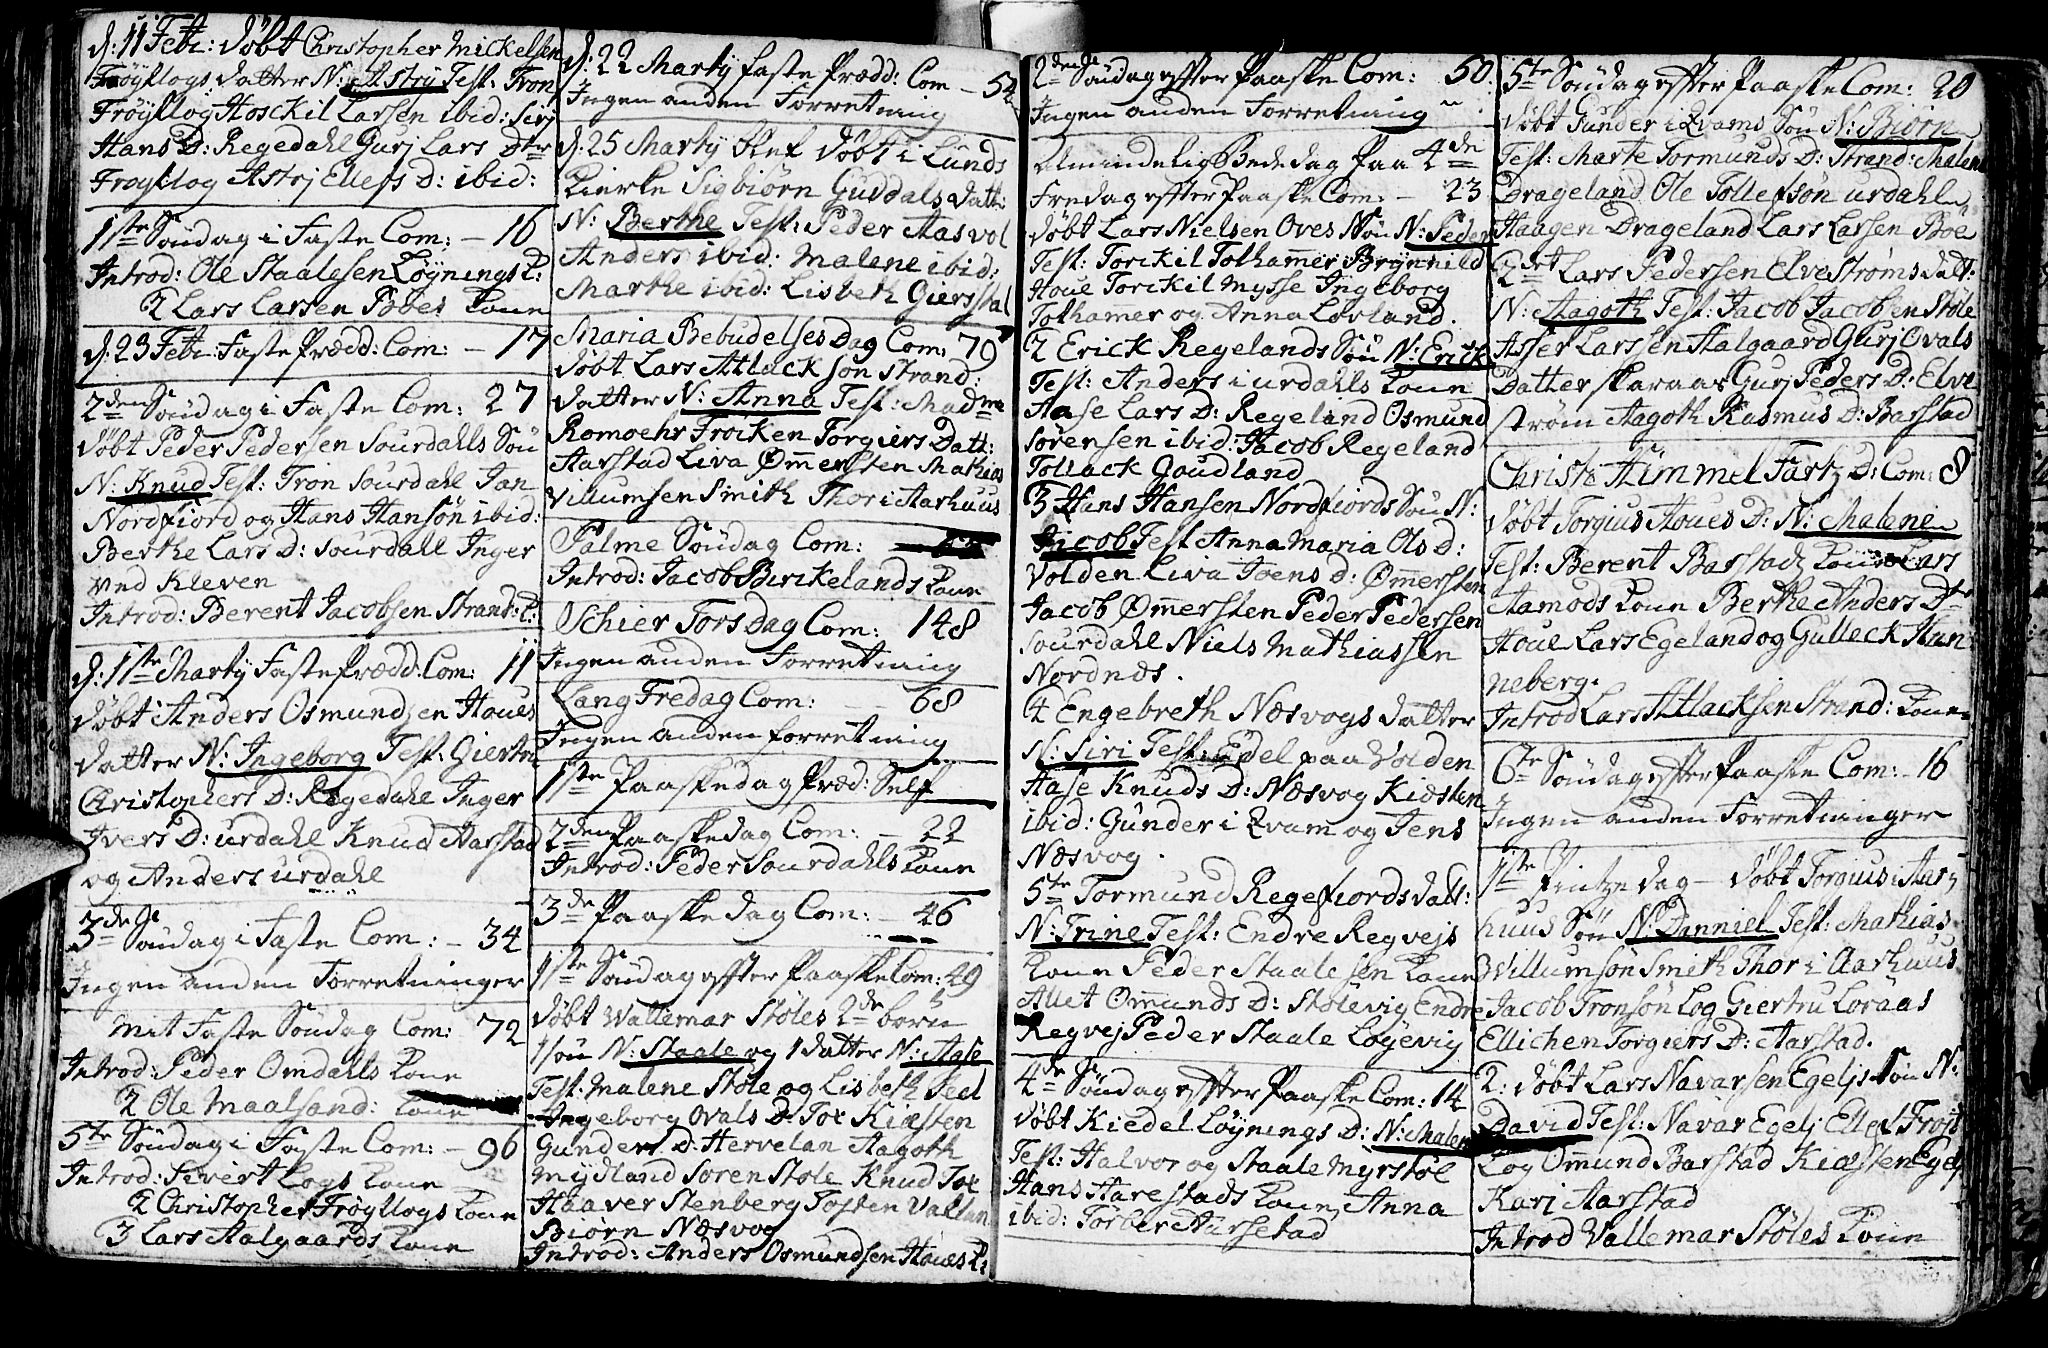 d: 11 Febr: døbt Christopher Mickelsen
Frøyllogs datter N: Astrj Test: Tron
Frøyllog Hosckil Larsen ibid: Sirj
Hans D: Regedahl Gurj Lars Dtr
Frøyllog Astrj Ellefs D: ibid:
1ste Søndag i Faste Com: – 16
Introd: Ole Staalesen Løynings K:
2 Lars Larsen Bøes Kone
d: 23 Febr: Faste Præd: Com: – 17
2den Søndag i Faste Com: 27
døbt Peder Pedersen Sourdahls Søn
N: Knud Test: Tron Sourdahl Jan
Nordfiord og Hans Hansøn ibid:
Berthe Lars D: Sourdahl Inger
ved Kleven
Introd: Berent Jacobsen Strand: K:
d: 1ste Martij Faste Præd: Com: 11
døbt Anders Osmundsen Houes
datter N: Ingeborg Test: Giertru
Christophers D: Regedahl Inger
Ivers D: urdahl Knud Aarstad
og Anders urdahl
3de Søndag i Faste Com: – 34
Ingen anden Forretninger
Mit Faste Søndag Com: 72
Introd: Peder Omdahls Kone
2 Ole Maalsand: Kone
5te Søndag i Faste Com: – 96
Introd: Sivert Logs Kone
2 Christopher Frøyllogs Kone
3 Lars Aalgaards Kone
d: 22 Martij Faste Præd: Com – 54
Ingen anden Forretning
d: 25 Martij blef døbt i Lunds
Kierke Sigbiørn Guddals datt:
N: Berthe Test: Peder Aasvol
Anders ibid: Malene ibid:
Marthe ibid: Lisbeth Gierstal
Maria Bebudelses Dag Com: 79
døbt Lars Atlacksøn Strand:
datter N: Anna Test: Madme
Romoehr Frøiken Torgiers Datt:
Aarstad Liva Ømersten Mathias
Villumsen Smith Thor i Aarhuus
Palme Søndag Com: –
Introd: Jacob Birkelands Kone
Schier Torsdag Com: 148
Ingen anden Forretning
Lang Fredag Com: 68
Ingen anden forretning
1ste Paaskedag Præd: Self
2den Paaskedag Com: – 22
Introd: Peder Sourdahls Kone
3de Paaskedag Com: – 46
1ste Søndag effter Paaske Com: 49
døbt Wallemar Støles 2de børn
1 søn N: Staale og 1 datter N: Aase
Test: Malene Støle og Lisbeth Sed
Ingeborg Ovals D: Tox Kiersten
Gunders D: Hervelan Aagoth
Mydland Søren Støle Knud Tox
Haaver Stenberg Tosten Vatlan
Biørn Næsvog
Introd: Anders Osmundsen Houes K:
2den Søndag effter Paaske Com: 50
Ingen anden Forretning
Almindelig Bededag Paa 4de
Fredag effter Paaske Com: – 23
døbt Lars Nielsen Oves Søn N: Peder
Test: Torckil Tolhamer Brynnild
Houe Torckil Mysse Ingeborg
Tolhamer og Anna Lovland.
2 Erick Regelands Søn N: Erick
Test: Anders i urdahls Kone
Aase Lars D: Regeland Osmund
Sørensen ibid: Jacob Regeland
Tollack Goudland
3 Hans Hansen Nordfiords Søn N:
Jacob Test Anna Maria Ols D:
Volden Liva Joens D: Ømersten
Jacob Ømersten Peder Pedersen
Sourdahl Niels Mathiassen
Nordnæs.
4 Engebreth Næsvogs datter
N: Siri Test: Edel paa Volden
Aase Knuds D: Næsvog Kiersten
ibid: Gunder i Qvam og Jens
Næsvog.
5te Tormund Regefiords datt:
N: Trine Test: Endre Regvejs
Kone Peder Staalesen Kone
Allet Omunds D: Stølevig Endre
Regvej Peder Staale Løyevig
4de Søndag effter Paaske Com: 14
døbt Kiedel Løynings D: N: Malen
Test: Halvor og Staale Myrstøl
Hans Harestads Kone Anna
ibid: Torber Aarsetad
5te Søndag effter Paaske Com: 20
døbt Gunder i Qvams Søn N: Biørn
Test: Marte Tormunds D: Strand: Malene
Drageland Ole Tollefsøn urdahl
Haagen Drageland Lars Larsen Boe
2det Lars Pedersen Elvestrøms datt:
N: Aagoth Test: Jacob Jacobsen Støle
Asser Larssen Aalgaard Gurj Ovals
Datter skaraas Gurj Peders D: Elve
strøm Aagoth Rasmus D: Barstad
Christi Himmel Fartz D: Com: 8
døbt Torgius Houes D: N: Malene
Test: Berent Barstads Kone Lars
Aamods Kone Berthe Anders Dtr
Houe Lars Egeland og Gulleck Hun
neberg.
Introd Lars Atlacksen Strand: Kone
6te Søndag effter Paaske Com: – 16
Ingen anden Forretninger
1ste Pintze dag – døbt Torgius i Aar
huus Søn N: Danniel Test: Mathias
Willumsøn Smith Thor i Aarhuus
Jacob Tronsøn Log Giertru Loraas
Ellichen Torgiers D: Aarstad.
2: døbt Lars Navarsen Egelj Søn N:
David Test: Navar Egelj Ellef Frøit
Log Omund Barstad Kiersten Egelj
Kari Aarstad
Introd Vallemar Støles Kone